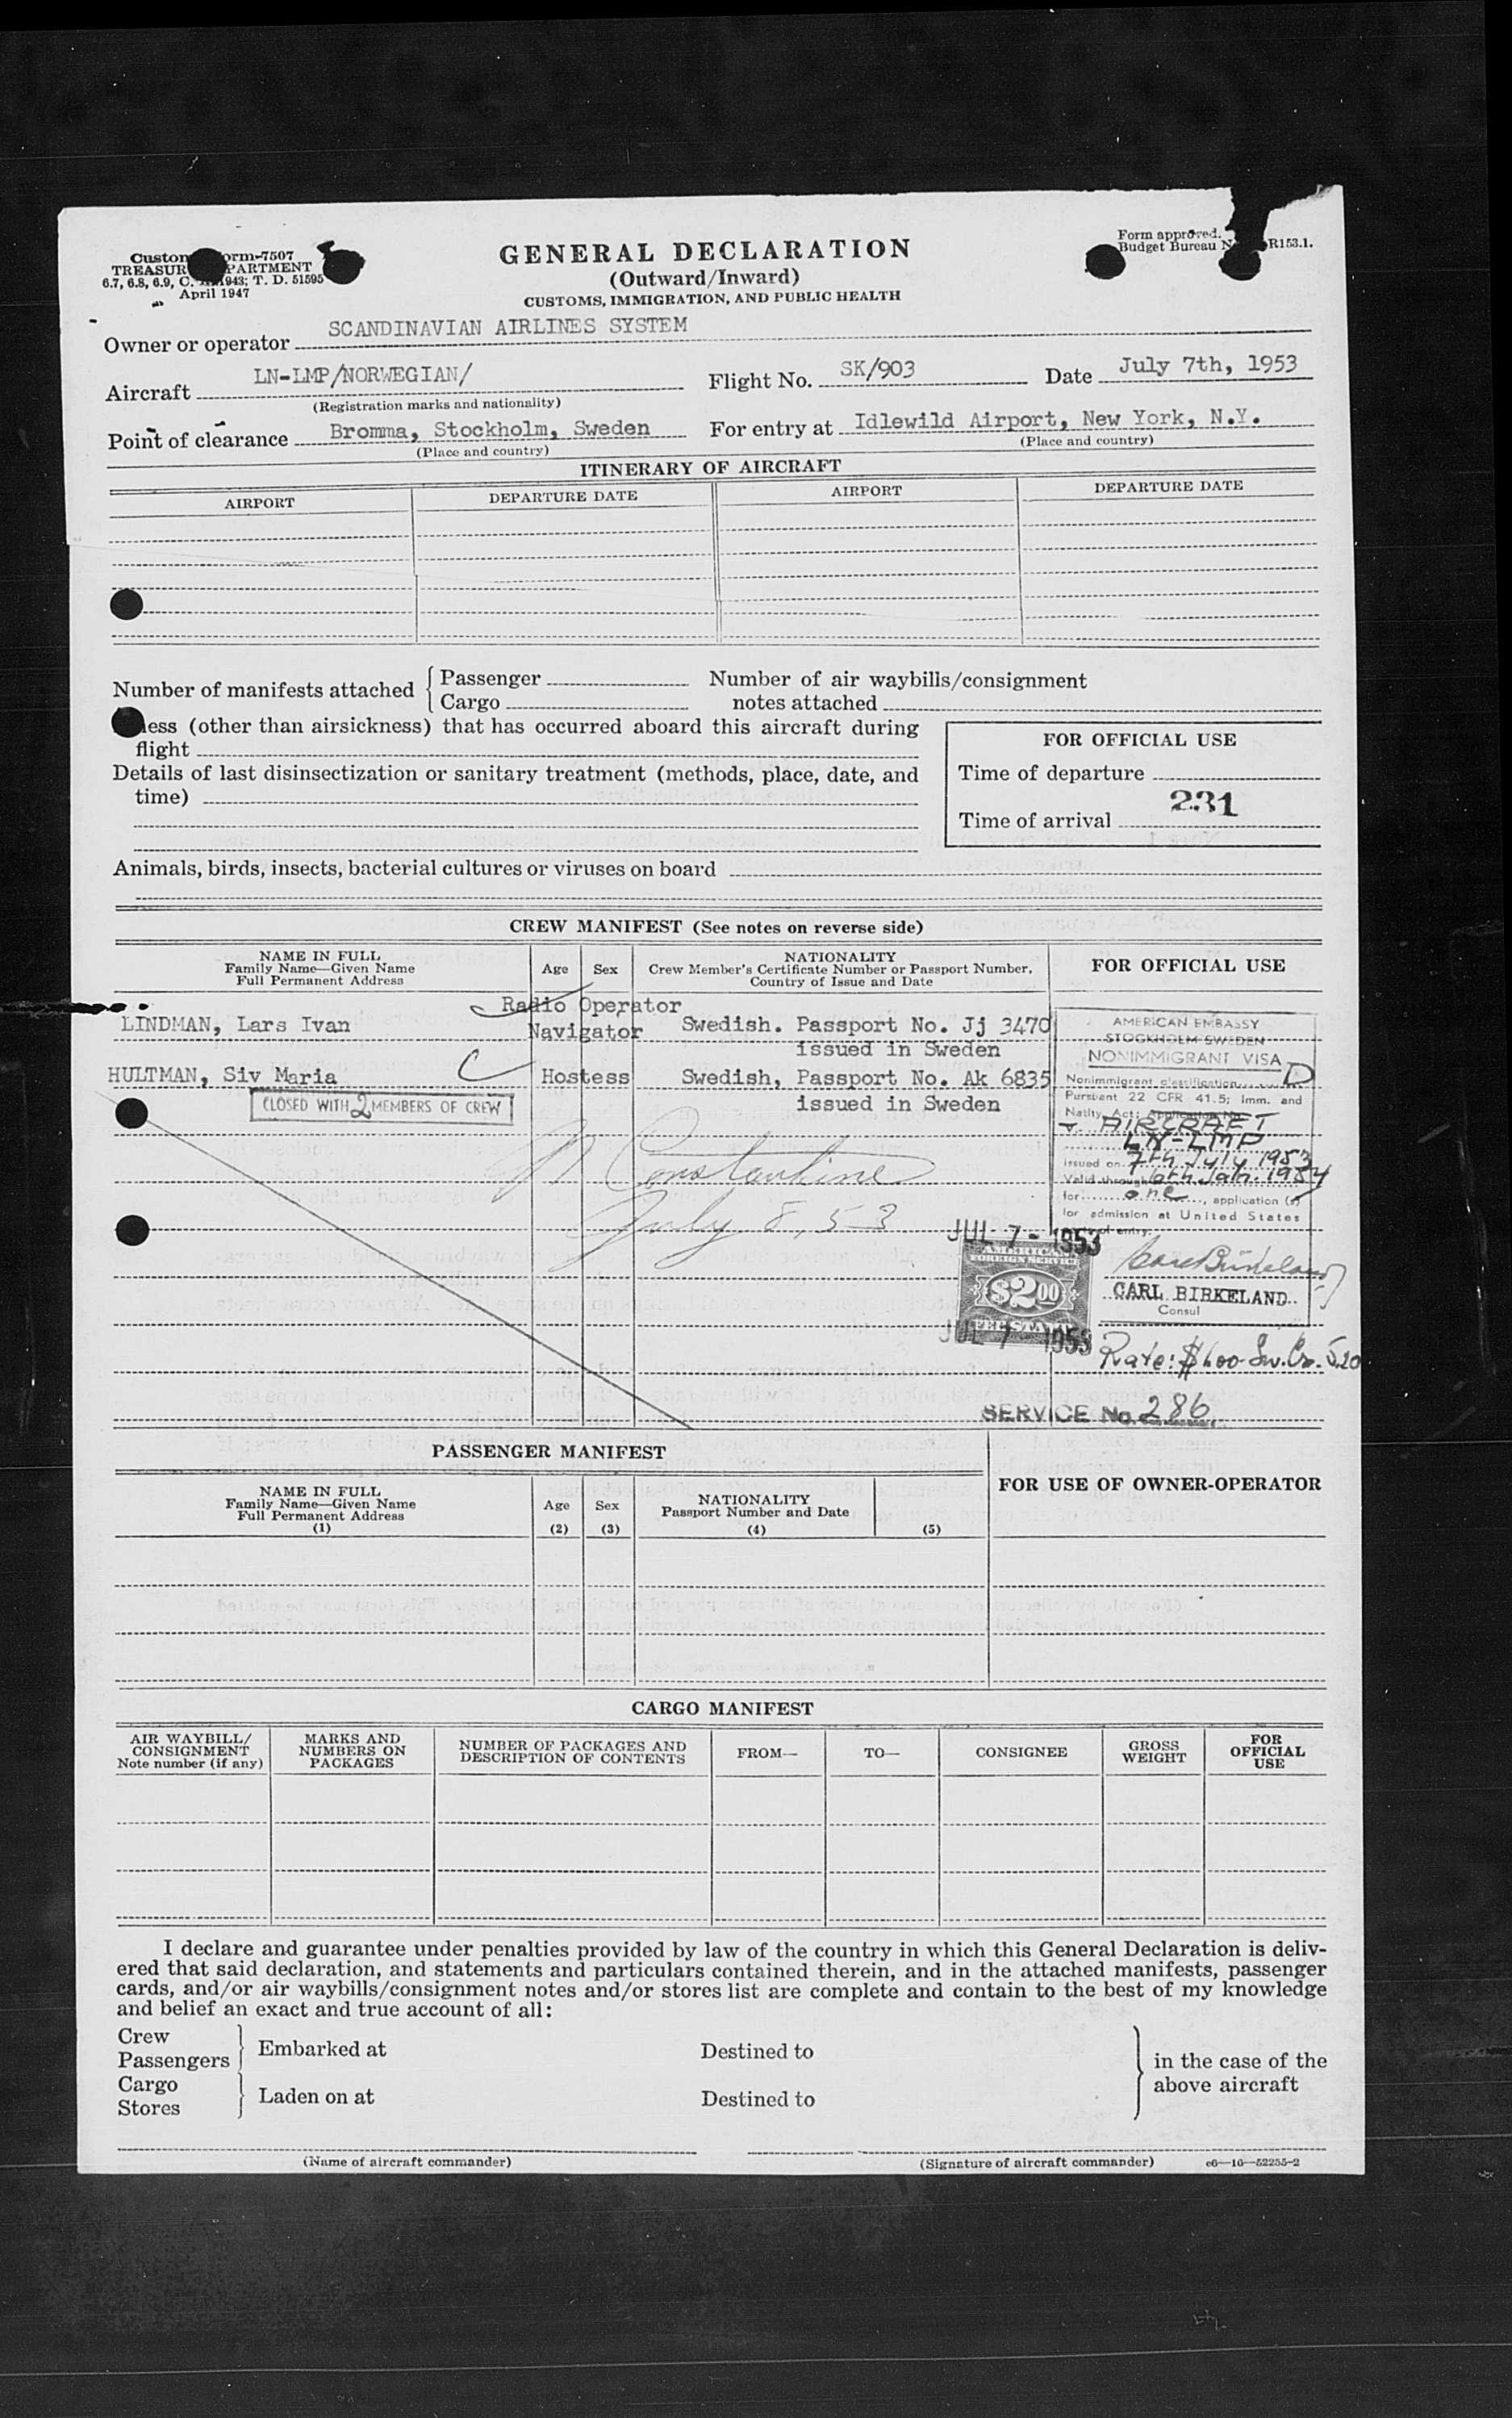 Form approved.
Budget Bureau N R153.1.
Custom orm-7507
TREASUR PARTMENT
6.7, 6.8, 6.9, C. 1943; T. D. 51595
April 1947
GENERAL DECLARATION
(Outward/Inward)
CUSTOMS, IMMIGRATION, AND PUBLIC HEALTH
Owner or operator SCANDINAVIAN AIRLINES SYSTEM
Aircraft LN-LMP/NORWEGIAN/ Flight No. SK/903 Date July 7th, 1953
(Registration marks and nationality)
Point of clearance Bromma, Stockholm, Sweden For entry at Idlewild Airport, New York, N.Y.
(Place and country) (Place and country)
ITINERARY OF AIRCRAFT
AIRPORT DEPARTURE DATE AIRPORT DEPARTURE DATE
Number of manifests attached { Passenger Number of air waybills/consignment
Cargo notes attached
ness (other than airsickness) that has occurred aboard this aircraft during
flight
Details of last disinsectization or sanitary treatment (methods, place, date, and
time)
FOR OFFICIAL USE
Time of departure
231
Time of arrival
Animals, birds, insects, bacterial cultures or viruses on board
CREW MANIFEST (See notes on reverse side)
NAME IN FULL
Family Name—Given Name
Full Permanent Address
Age Sex
NATIONALITY
Crew Member's Certificate Number or Passport Number,
Country of Issue and Date
FOR OFFICIAL USE
Radio Operator
LINDMAN, Lars Ivan Navigator Swedish. Passport No. Jj 3470
issued in Sweden
HULTMAN, Siv Maria C Hostess Swedish, Passport No. Ak 6835
issued in Sweden
CLOSED WITH 2 MEMBERS OF CREW
N Constantine
July 8, 53
AMERICAN EMBASSY
STOCKHOLM SWEDEN
NONIMMIGRANT VISA
Nonimmigrant classification D
Pursuant 22 CFR 41.5; Imm. and
Natlty. Act; Application No.
AIRCRAFT
LN-LMP
Issued on 7th July 1953
Valid through 6th Jan. 1954
for one, application (s)
for admission at United States
of entry.
JUL 7 - 1953
AMERICAN
FOREIGN SERVICE
$2.00
FEE STAMP
JUL 7 - 1953
Carl Birkeland
CARL BIRKELAND
Consul
Rate: $1.00 Sw. Cr. 5.20
SERVICE No. 286
PASSENGER MANIFEST
FOR USE OF OWNER-OPERATOR
NAME IN FULL
Family Name—Given Name
Full Permanent Address
(1)
Age
(2)
Sex
(3)
NATIONALITY
Passport Number and Date
(4) (5)
CARGO MANIFEST
AIR WAYBILL/
CONSIGNMENT
Note number (if any)
MARKS AND
NUMBERS ON
PACKAGES
NUMBER OF PACKAGES AND
DESCRIPTION OF CONTENTS
FROM—
TO—
CONSIGNEE
GROSS
WEIGHT
FOR
OFFICIAL
USE
I declare and guarantee under penalties provided by law of the country in which this General Declaration is deliv-
ered that said declaration, and statements and particulars contained therein, and in the attached manifests, passenger
cards, and/or air waybills/consignment notes and/or stores list are complete and contain to the best of my knowledge
and belief an exact and true account of all:
Crew
Passengers } Embarked at Destined to
Cargo
Stores } Laden on at Destined to
} in the case of the
above aircraft
(Name of aircraft commander) (Signature of aircraft commander) c6—16—52255-2